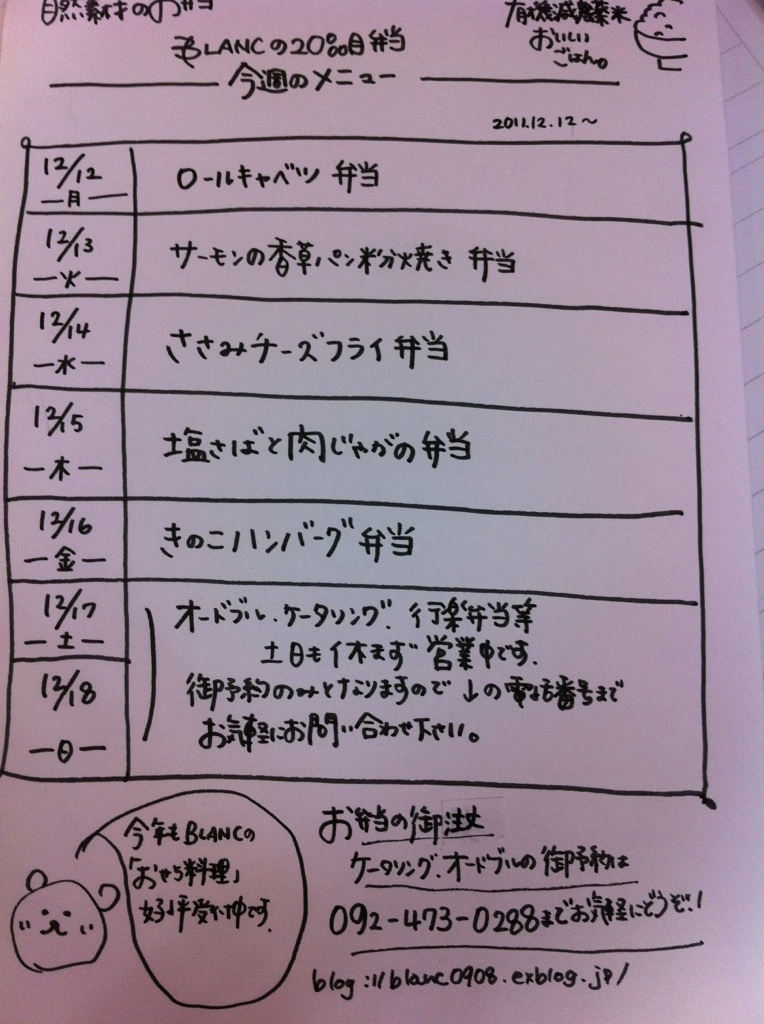 自然素材のお弁当
有機減農薬米
おいしい
ごはん。
BLANCの20品目弁当
今週のメニュー
2011.12.12～
12/12
月
ロールキャベツ 弁当
12/13
火
サーモンの香草パン粉焼き 弁当
12/14
水
ささみチーズフライ弁当
12/15
木
塩さばと肉じゃがの弁当
12/16
金
きのこハンバーグ弁当
12/17
土
12/18
日
オードブル、ケータリング、行楽弁当等
土日も休まず営業中です。
御予約のみとなりますので↓の電話番号まで
お気軽にお問い合わせ下さい。
今年もBLANCの
「おせち料理」
好評受付中です。
お弁当の御注文
ケータリング、オードブルの御予約は
092-473-0288までお気軽にどうぞ!
blog://blanc0908.exblog.jp/